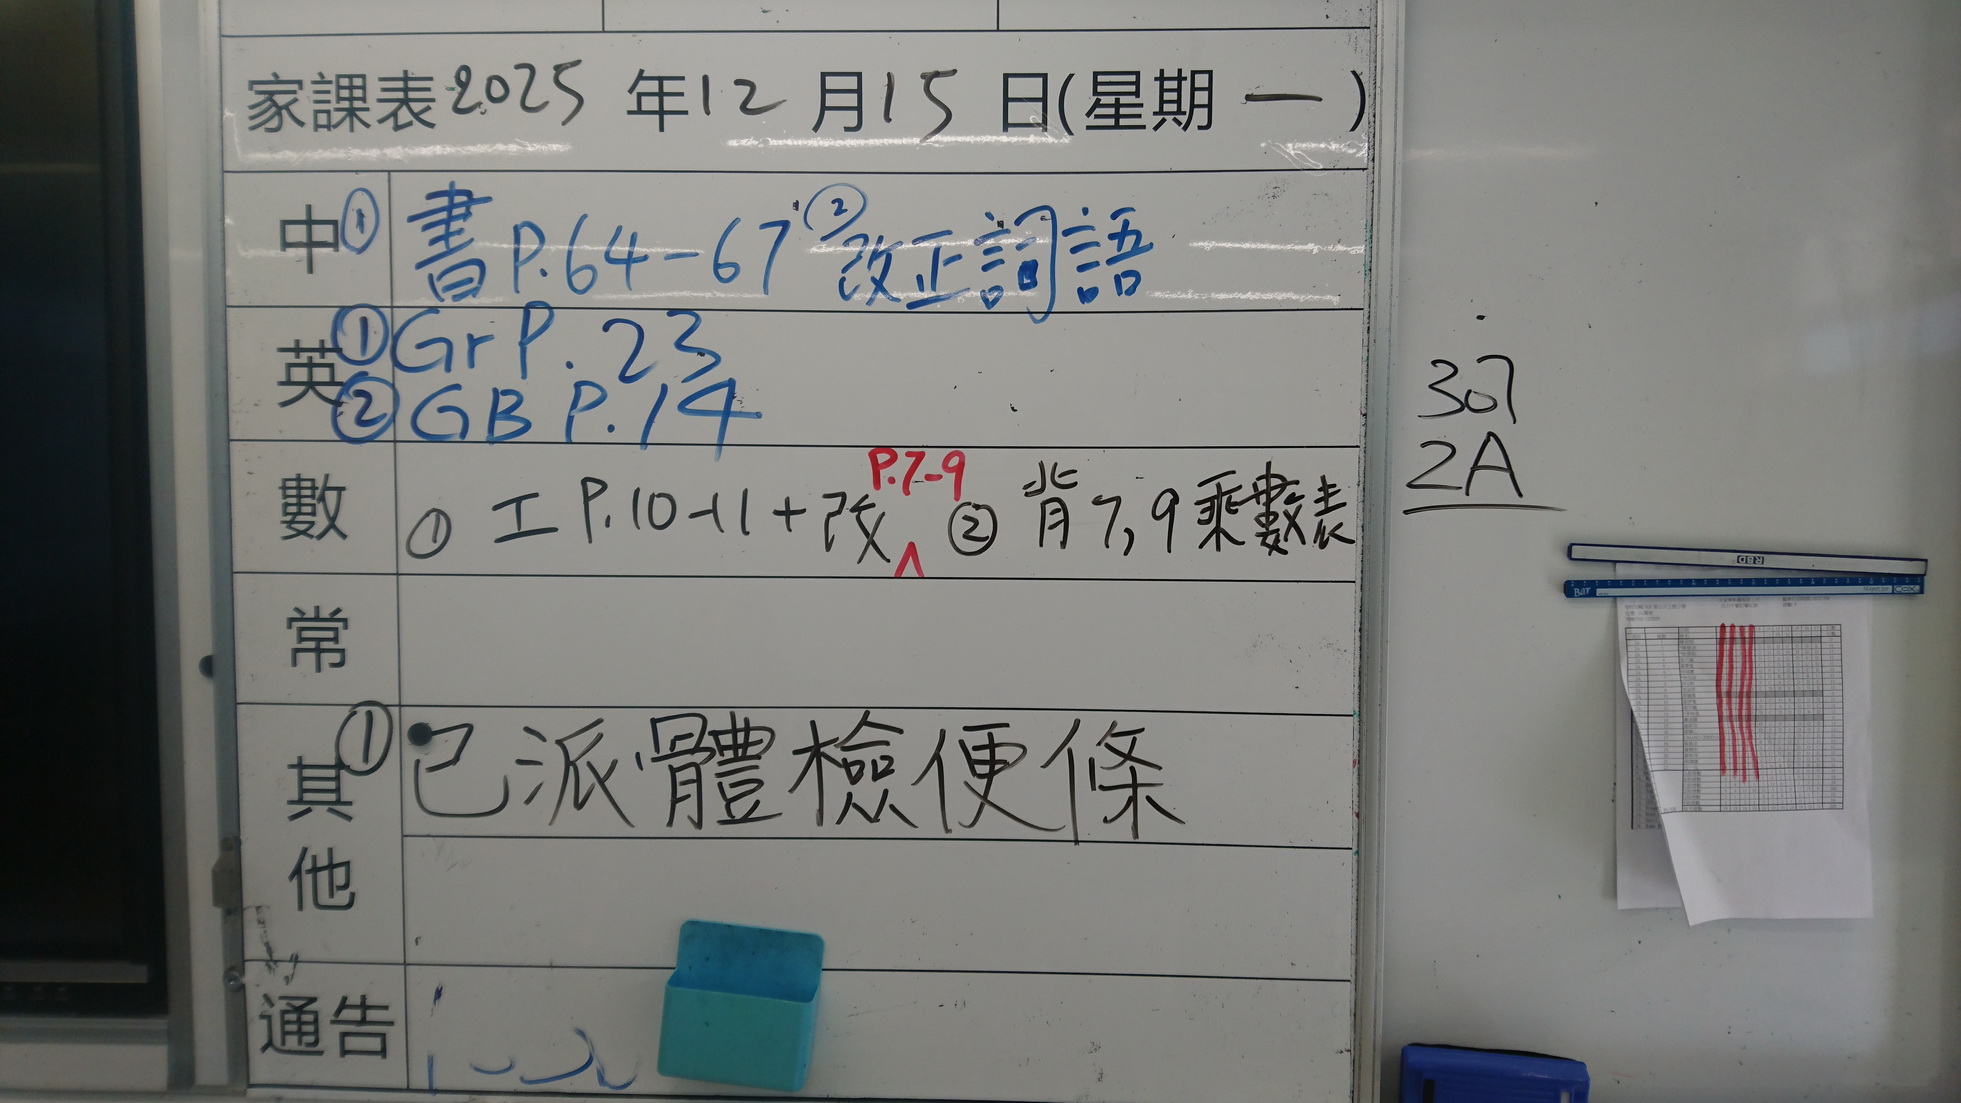 家課表 2025 年 12 月 15 日(星期 一 )
中 ① 書 P.64-67 ② 改正詞語
英 ① Gr P. 23
② GB P. 14
數 ① 工 P.10-11 + 改 P.7-9 ② 背 7, 9 乘數表
常
其他 ① 已派體檢便條
通告
307
2A